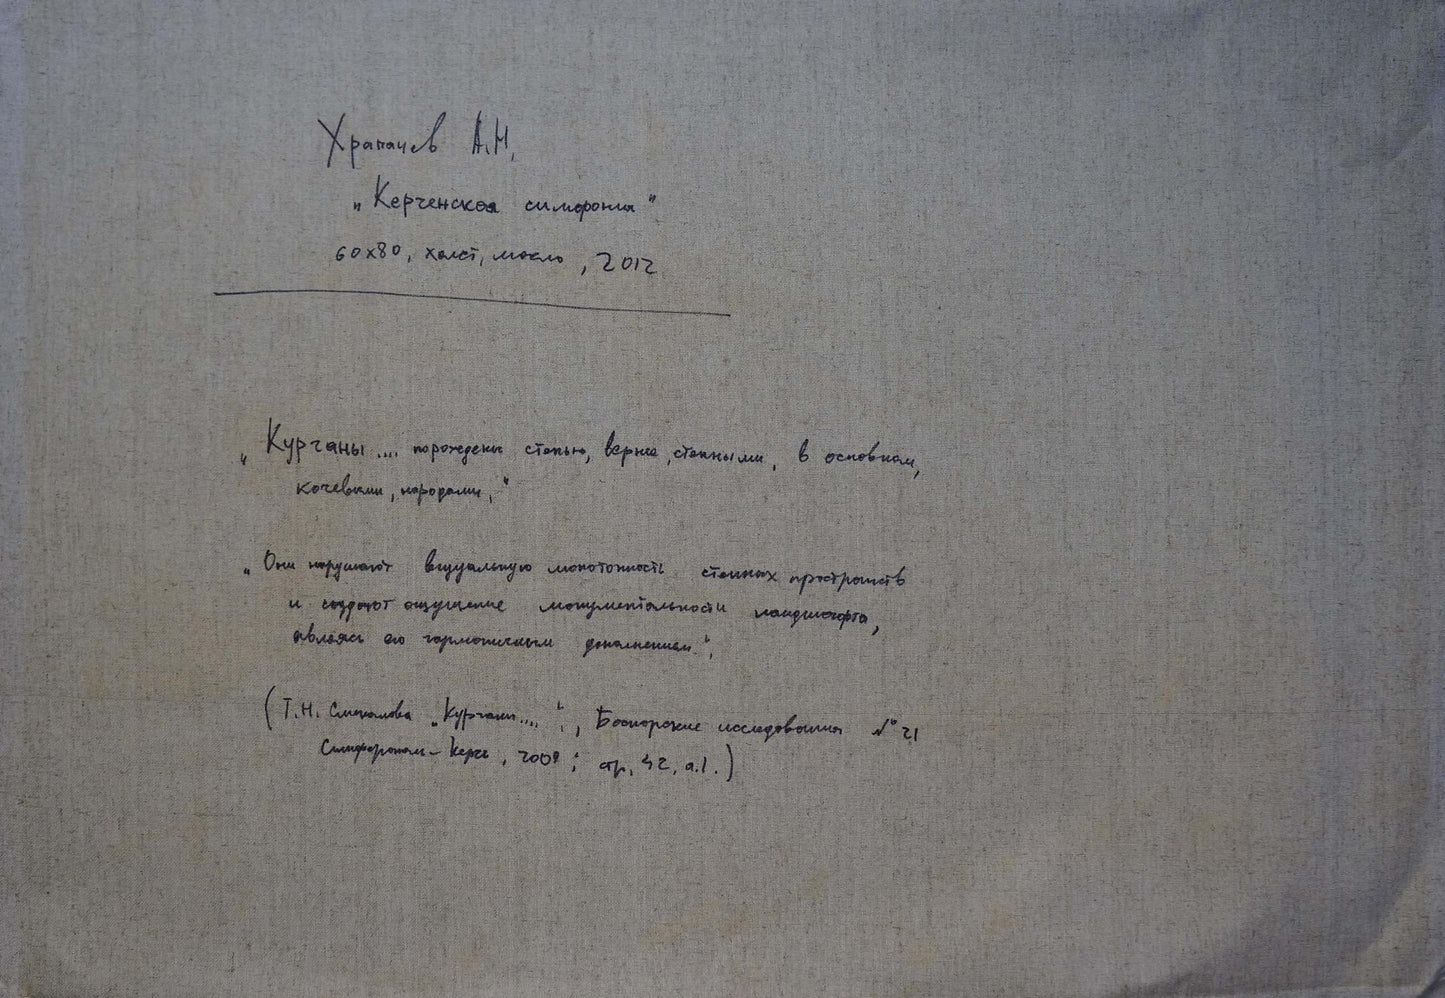 Храпачев А.Н.
„Керченская симфония"
60х80, холст, масло, 2012
„Курганы .... порождены степью, вернее, степными, в основном,
кочевыми, народами,"
„Они нарушают визуальную монотонность степных пространств
и создают ощущение монументальности ландшафта,
являясь его гармоничным дополнением",
(Т.Н. Смекалова „Курганы....", Боспорские исследования №21
Симферополь-Керчь, 2009; стр. 42, а.1.)